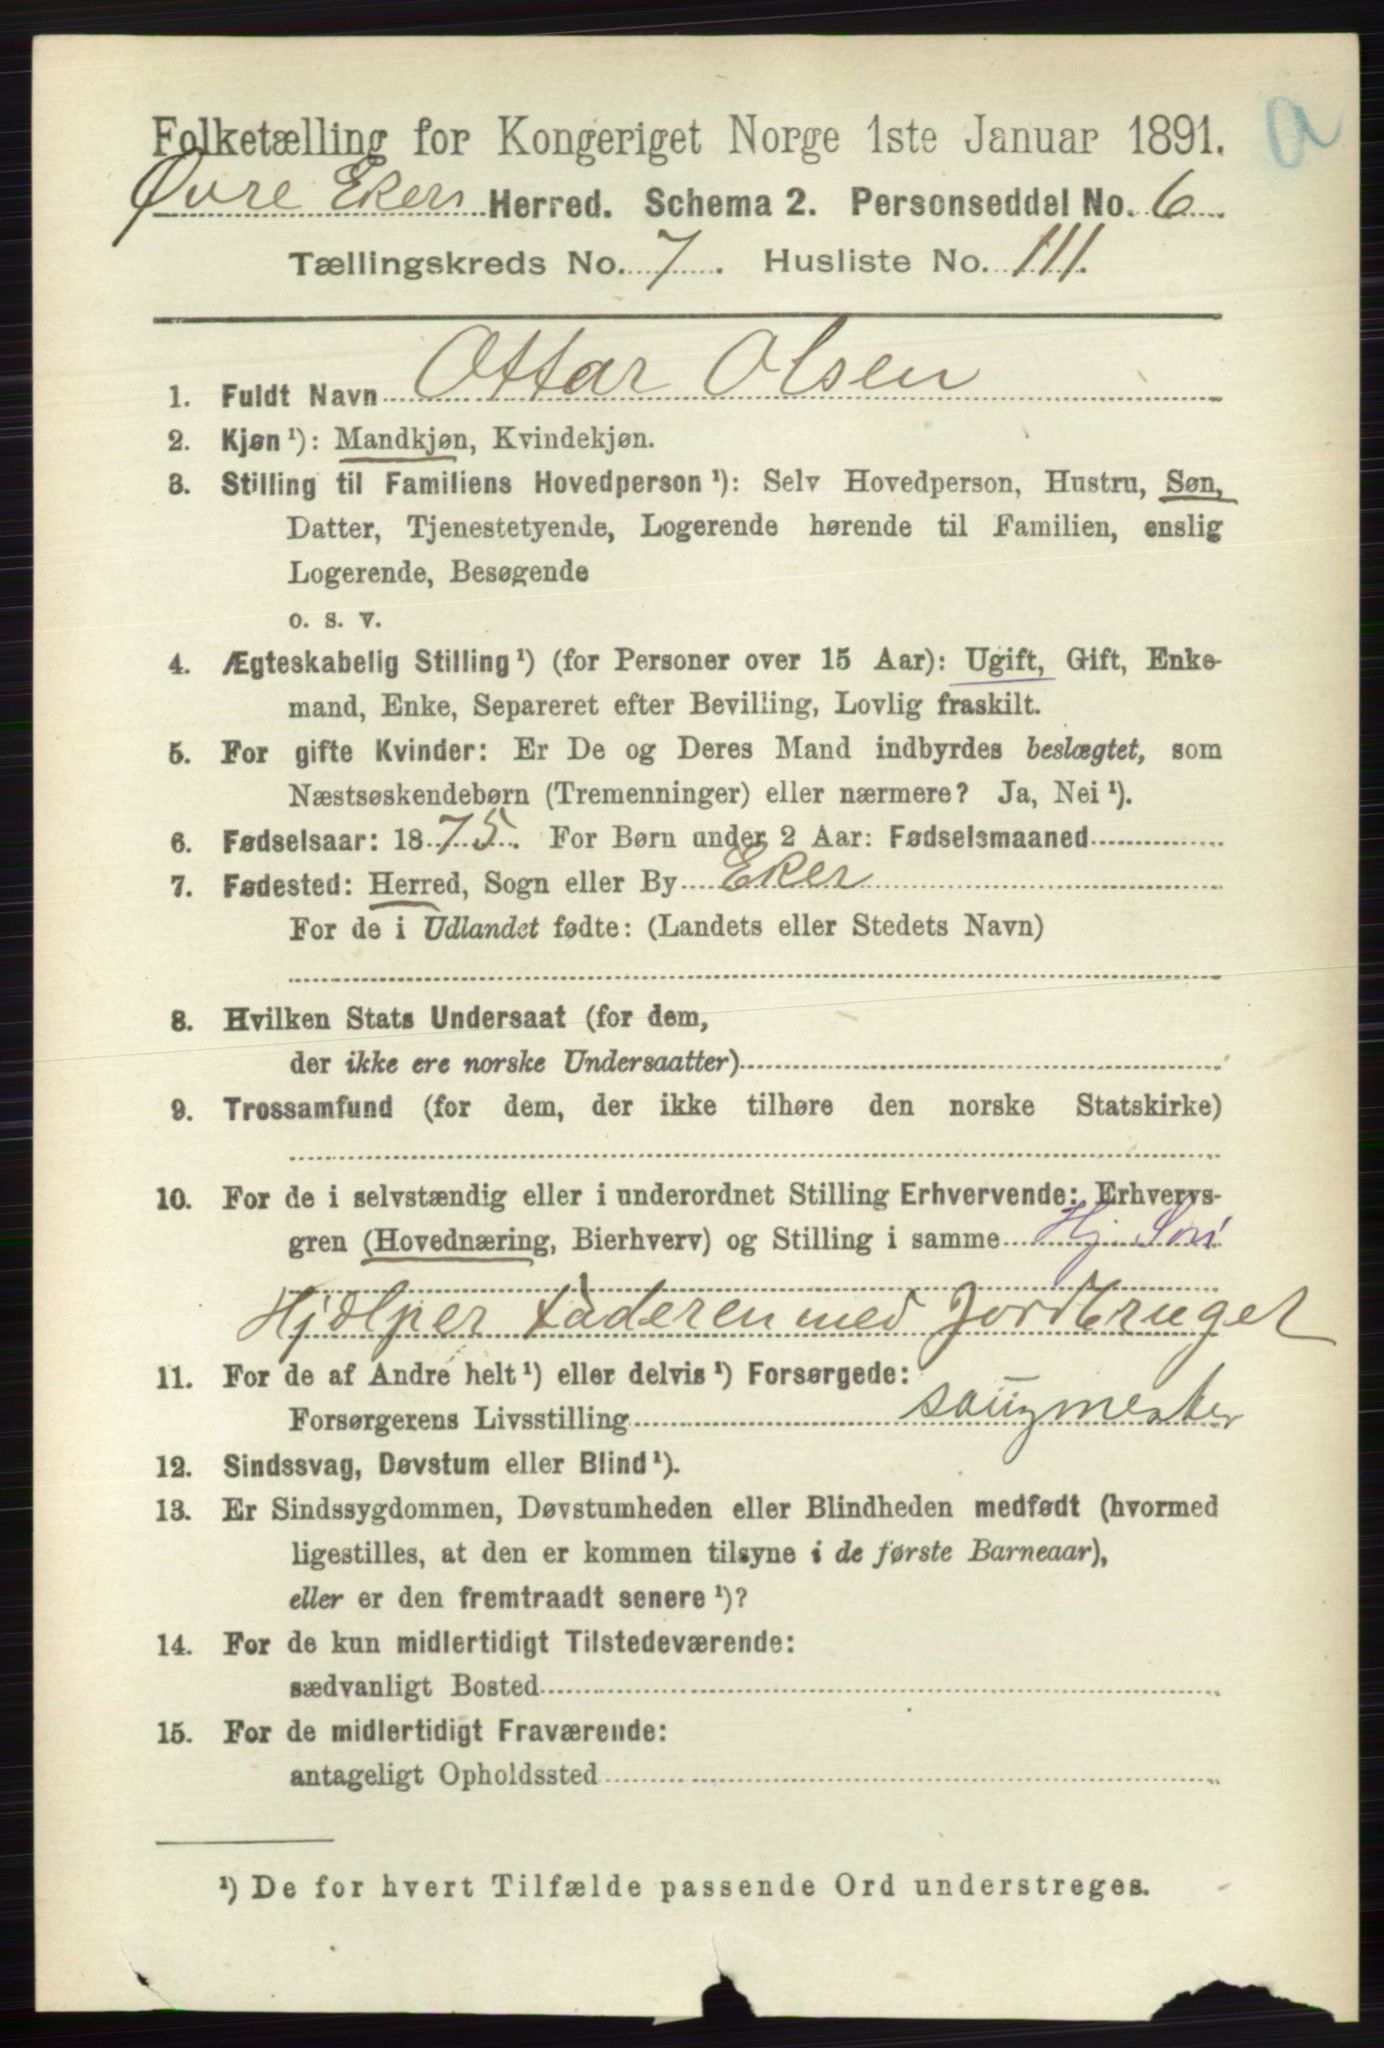 a
Folketælling for Kongeriget Norge 1ste Januar 1891.
Øvre Ekers Herred. Schema 2. Personseddel No. 6
Tællingskreds No. 7. Husliste No. 111.
1. Fuldt Navn Ottar Olsen
2. Kjøn¹): Mandkjøn, Kvindekjøn.
3. Stilling til Familiens Hovedperson¹): Selv Hovedperson, Hustru, Søn,
Datter, Tjenestetyende, Logerende hørende til Familien, enslig
Logerende, Besøgende
o. s. v.
4. Ægteskabelig Stilling¹) (for Personer over 15 Aar): Ugift, Gift, Enke-
mand, Enke, Separeret efter Bevilling, Lovlig fraskilt.
5. For gifte Kvinder: Er De og Deres Mand indbyrdes beslægtet, som
Næstsøskendebørn (Tremenninger) eller nærmere? Ja, Nei¹).
6. Fødselsaar: 1875. For Børn under 2 Aar: Fødselsmaaned
7. Fødested: Herred, Sogn eller By Eker
For de i Udlandet fødte: (Landets eller Stedets Navn)
8. Hvilken Stats Undersaat (for dem,
der ikke ere norske Undersaatter)
9. Trossamfund (for dem, der ikke tilhøre den norske Statskirke)
10. For de i selvstændig eller i underordnet Stilling Erhvervende: Erhvervs-
gren (Hovednæring, Bierhverv) og Stilling i samme Hj
Hjælper Faderen med Jordbruget
11. For de af Andre helt¹) eller delvis¹) Forsørgede:
Forsørgerens Livsstilling saugmester
12. Sindssvag, Døvstum eller Blind¹).
13. Er Sindssygdommen, Døvstumheden eller Blindheden medfødt (hvormed
ligestilles, at den er kommen tilsyne i de første Barneaar),
eller er den fremtraadt senere¹)?
14. For de kun midlertidigt Tilstedeværende:
sædvanligt Bosted
15. For de midlertidigt Fraværende:
antageligt Opholdssted
¹) De for hvert Tilfælde passende Ord understreges.